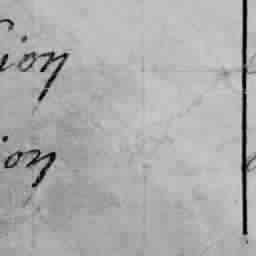 ion
ion